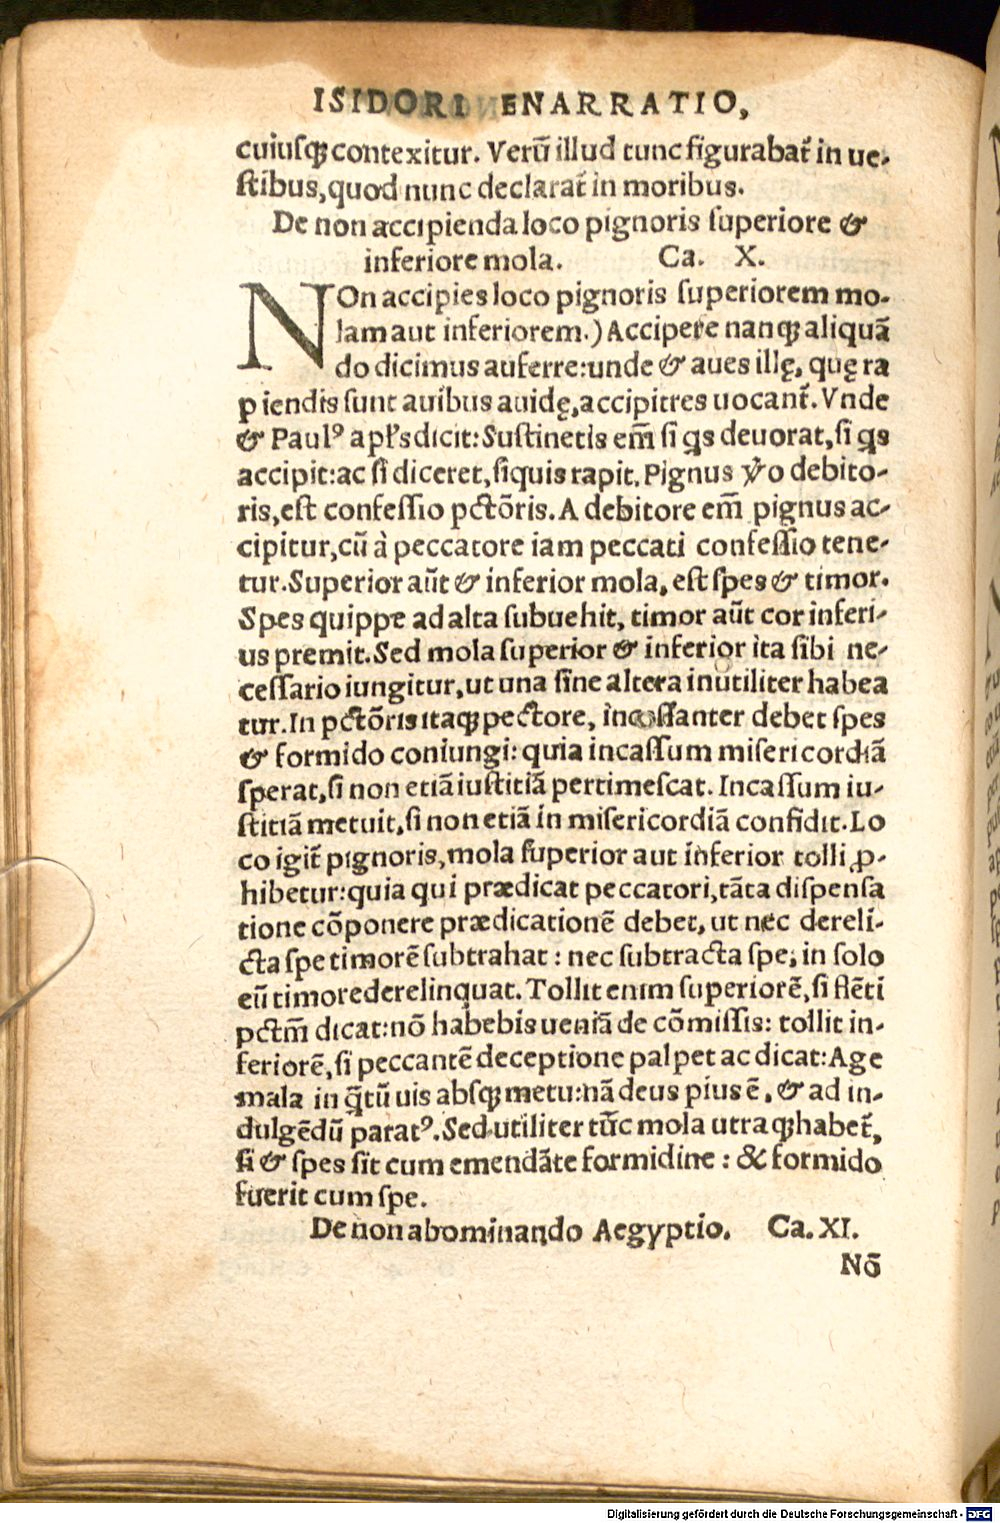 ISIDORI ENARRATIO,
cuiuſqꝫ contexitur. Verũ illud tunc figurabat᷑ in ue-
ſtibus, quod nunc declarat᷑ in moribus.
De non accipienda loco pignoris ſuperiore &
inferiore mola. Ca. X.
NOn accipies loco pignoris ſuperiorem mo-
lam aut inferiorem.) Accipere nanqꝫ aliquã
do dicimus auferre: unde & aues illę, quę ra
piendis ſunt auibus auidę, accipitres uocant᷑. Vnde
& Paulꝰ apľs dicit: Suſtinetis em̃ ſi qͥs deuorat, ſi qͥs
accipit: ac ſi diceret, ſiquis rapit. Pignus ꝟo debito-
ris, eſt confeſſio pctõris. A debitore em̃ pignus ac-
cipitur, cũ à peccatore iam peccati confeſſio tene-
tur. Superior aũt & inferior mola, eſt ſpes & timor.
Spes quippe ad alta ſubuehit, timor aũt cor inferi-
us premit. Sed mola ſuperior & inferior ita ſibi ne-
ceſſario iungitur, ut una ſine altera inutiliter habea
tur. In pctõris itaqꝫ pectore, inceſſanter debet ſpes
& formido coniungi: quia incaſſum miſericordiã
ſperat, ſi non etiã iuſtitiã pertimeſcat. Incaſſum iu-
ſtitiã metuit, ſi non etiã in miſericordiã confidit. Lo
co igit᷑ pignoris, mola ſuperior aut inferior tolli ꝓ-
hibetur: quia qui prædicat peccatori, tãta diſpenſa
tione cõponere prædicationẽ debet, ut nec dereli-
cta ſpe timorẽ ſubtrahat: nec ſubtracta ſpe, in ſolo
eũ timore derelinquat. Tollit enim ſuperiorẽ, ſi flẽti
pctm̃ dicat: nõ habebis ueniã de cõmiſſis: tollit in-
feriorẽ, ſi peccantẽ deceptione palpet ac dicat: Age
mala in q̃tũ uis abſqꝫ metu: nã deus pius ẽ, & ad in-
dulgẽdũ paratꝰ. Sed utiliter tũc mola utraqꝫ habet᷑,
ſi & ſpes ſit cum emendãte formidine: & formido
fuerit cum ſpe.
De non abominando Aegyptio. Ca. XI.
Nõ
Digitalisierung gefördert durch die Deutsche Forschungsgemeinschaft - DFG